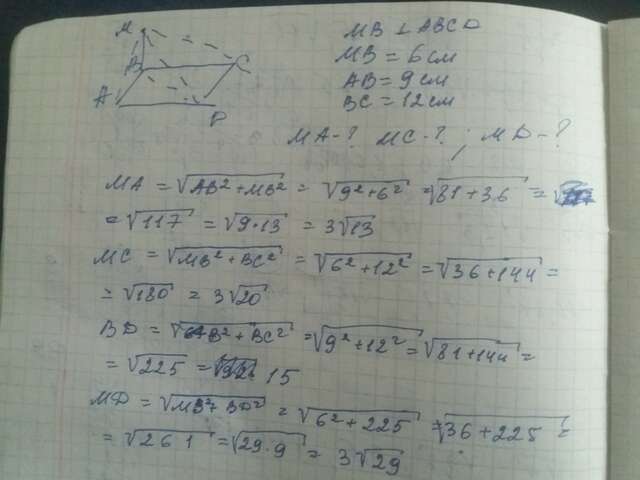 M
B
C
A
D
MB ⊥ ABCD
MB = 6 см
AB = 9 см
BC = 12 см
MA - ? MC - ? ; MD - ?
MA = √AB² + MB² = √9² + 6² = √81 + 36 =
= √117 = √9·13 = 3√13
MC = √MB² + BC² = √6² + 12² = √36 + 144 =
= √180 = 3√20
BD = √AB² + BC² = √9² + 12² = √81 + 144 =
= √225 = 15
MD = √MB² + BD² = √6² + 225 = √36 + 225 =
= √261 = √29·9 = 3√29